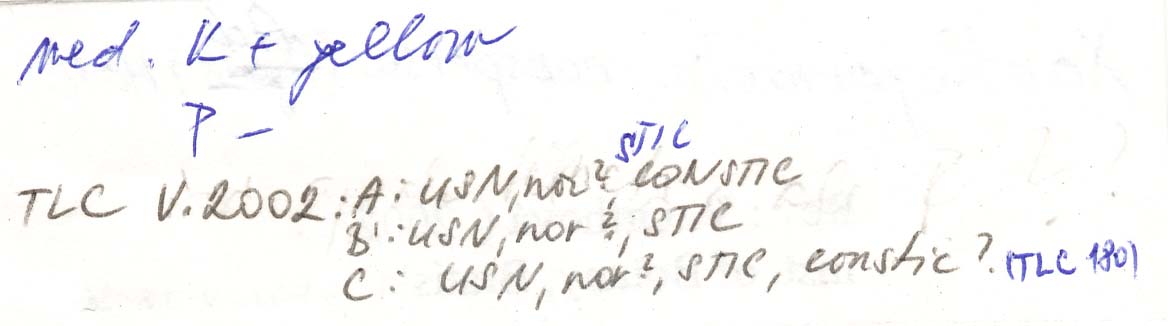 med. K + yellow
P -
STIC
TLC V.2002: A: USN, nor?, CONSTIC
B: USN, nor?, STIC
C: USN, nor?, STIC, constic? (TLC 180)